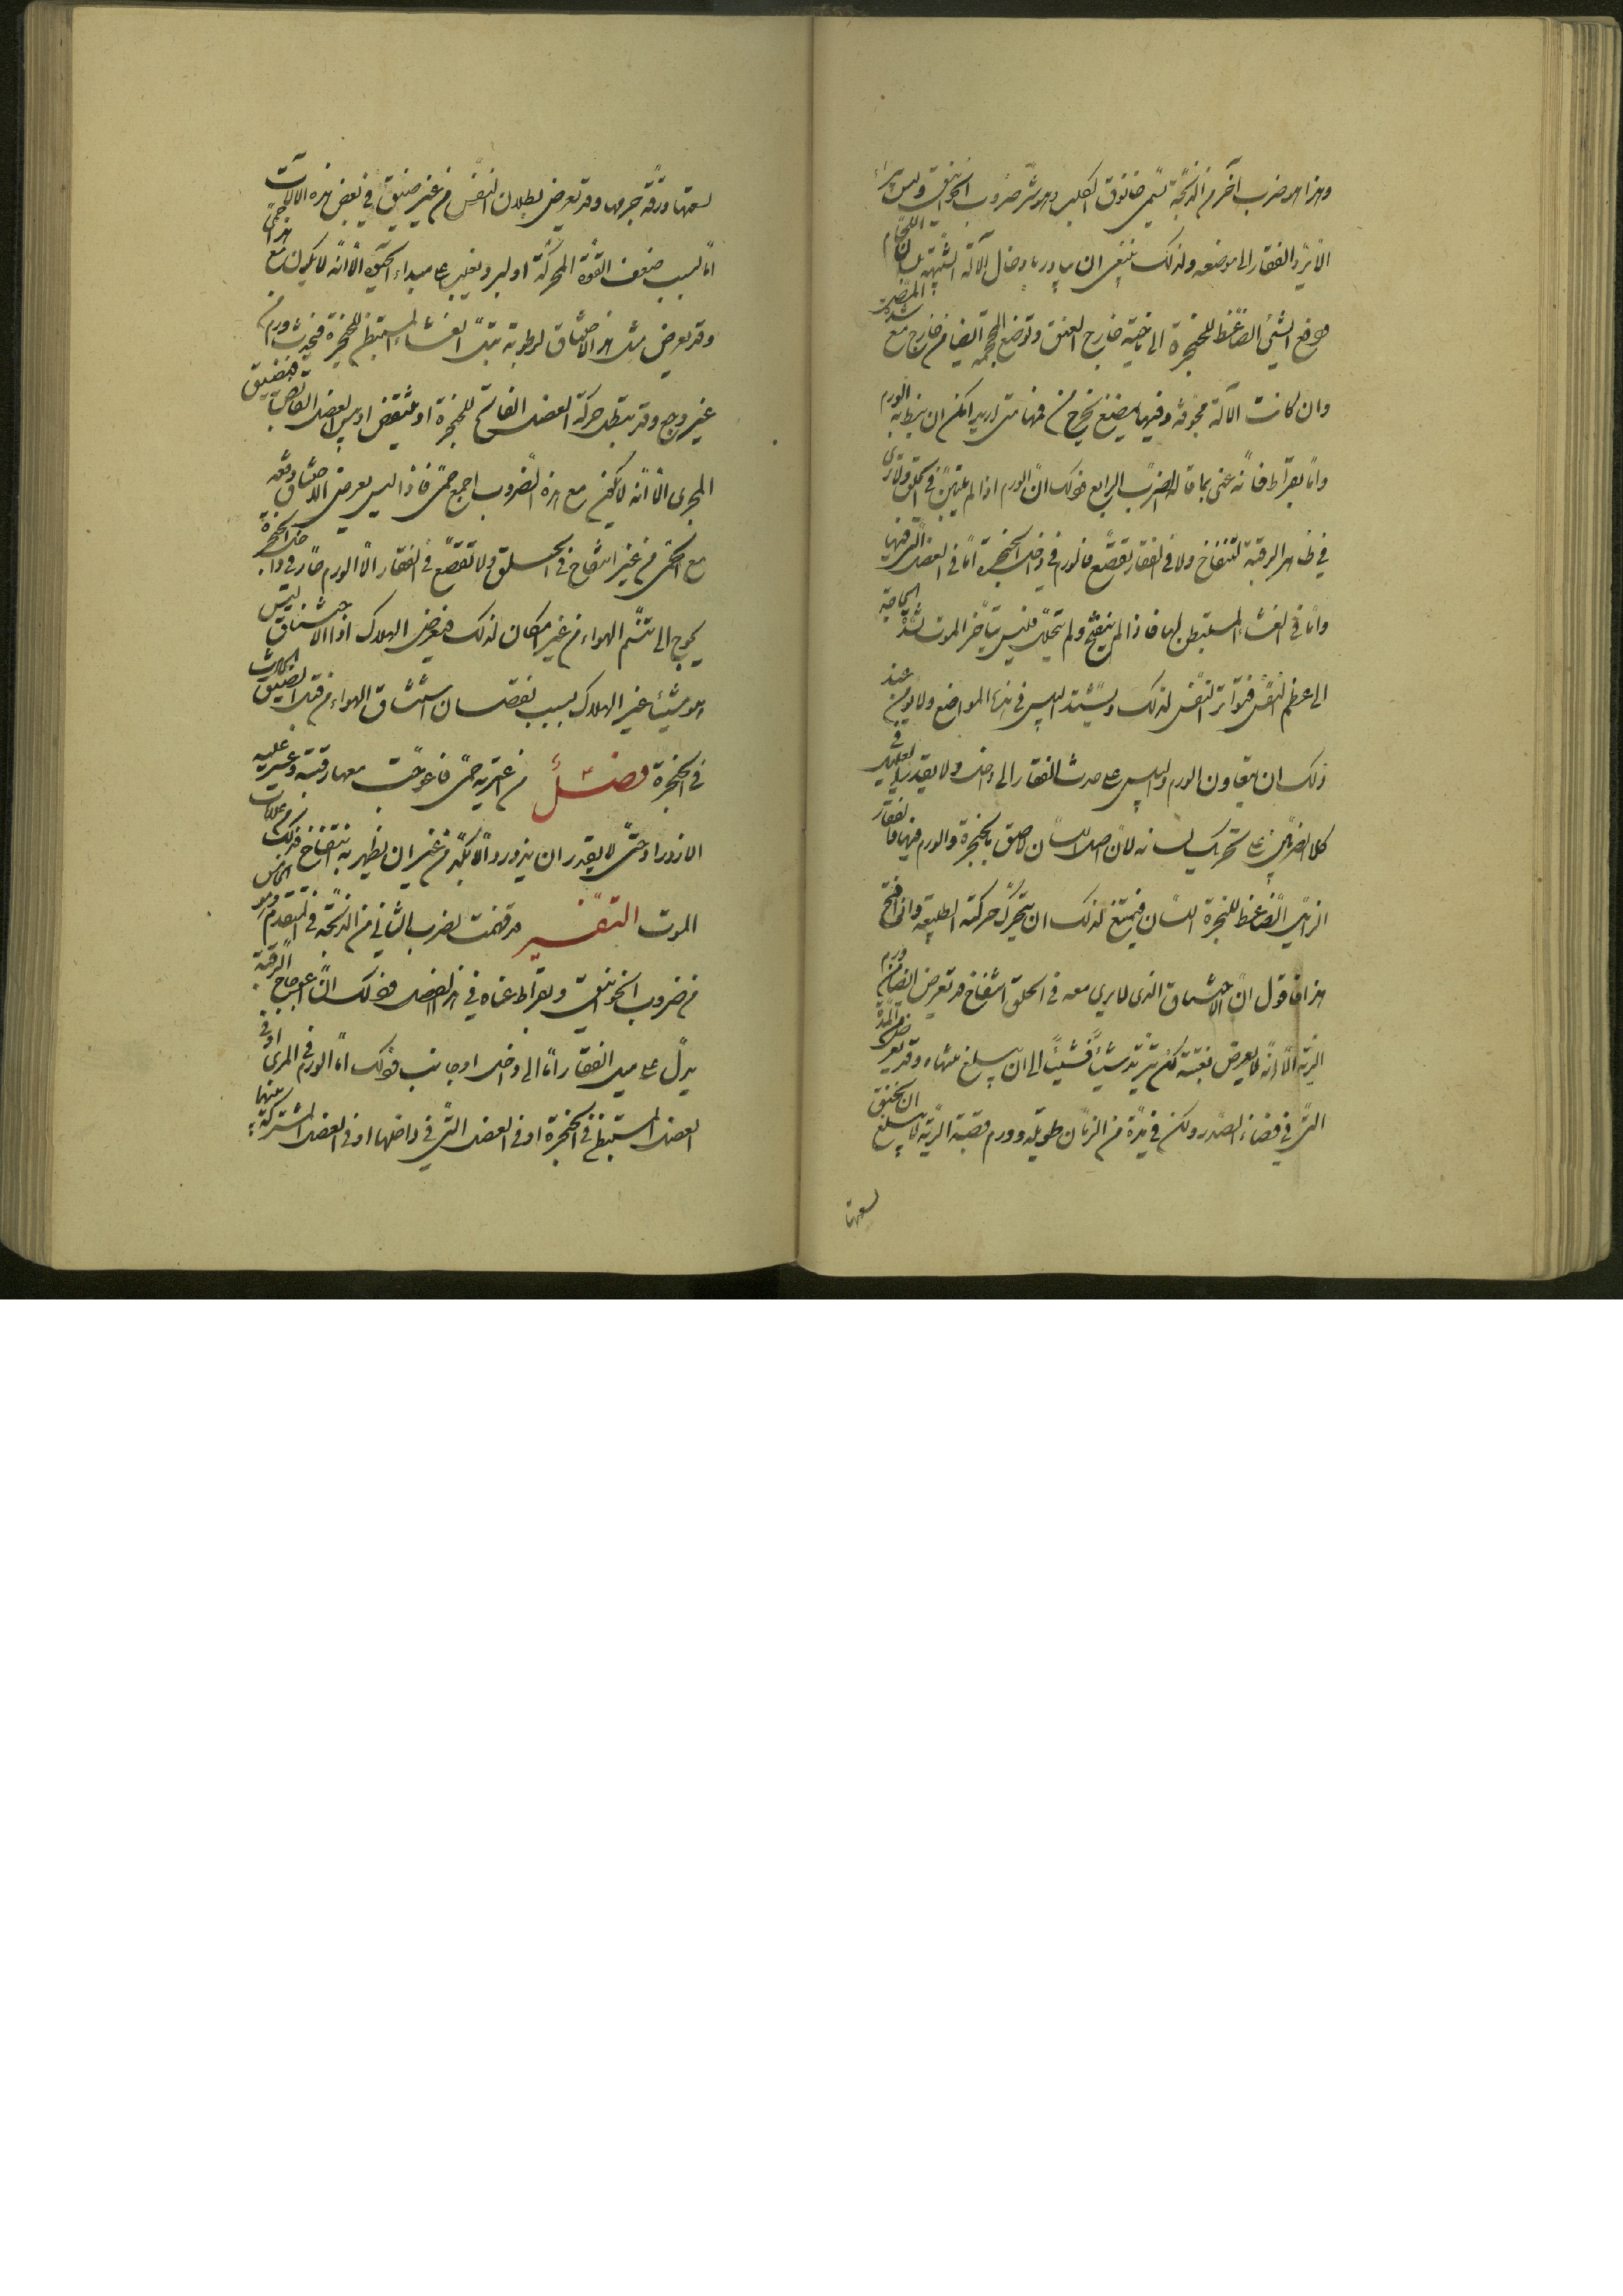 وهذا هو ضرب آخر من الذبحة يسمى خانوق الكلب وهو شر ضروب الخوانيق وليس برء
الا برد الفقار الى موضعه ولذلك ينبغي ان يبادر بادخال الآلة الشبيهة بلسان اللجام
فيدفع الشيء الضاغط للحنجرة الى ناحية خارج العنق وتوضع المحجمة ايضا من خارج مع
وان كانت الآلة مجوفة وفيها مبضع يخرج منه متى اريد امكن ان يبط به الورم
واما بقراط فانه عنى بما قاله الضرب الرابع وذلك ان الورم اذا لم يتبين في الحلق ولا يرى
في ظاهر الرقبة انتفاخ ولا في الفقار تقصع فالورم في داخل الحنجرة اما في العضل التي فيها
واما في الغشاء المستبطن لها فاذا لم ينفتح ولم يتحلل فليس يتأخر الموت لشدة الحاجة
الى عظم النفس فيتواتر النفس لذلك ويشتد اليبس في هذه المواضع ولا يؤمن عند
ذلك ان يتعاون الورم واليبس على جذب الفقار الى داخل ولا يقدر العليل في
كلا الضربين على تحريك لسانه لان اصل اللسان لاصق بالحنجرة والورم فيها والفقار
الزائل الضاغط للحنجرة اللسان فيمتنع لذلك ان يتحرك حركته الطبيعية واني افتح
هذا فاقول ان الاختناق الذي لا يرى معه في الحلق انتفاخ قد يعرض ايضا من ورم
الرية الا انه لا يعرض بغتة لكن يتزيد شيئا فشيئا الى ان يبلغ منتهاه وقد يعرض من المدة
التي في فضاء الصدر ولكن في مدة من الزمان طويلة وورم قصبة الرية لا يبلغ ان يخنق
لسعتها
لسعتها ورقة جرمها وقد يعرض بطلان النفس من غير ضيق في بعض هذه الآلات
اما بسبب ضعف القوة المحركة او لبرد يغلب على مبداء الحيوة الا انه لا يكون مع هذا حمى
وقد يعرض مثل هذا الاختناق لرطوبة تبل الغشاء المستبطن للحنجرة فيحدث ورم من
غير وجع وقد تبطل حركة العضل الفاتح للحنجرة او يتقبض العضل القابض فيضيق
المجرى الا انه لا يكون مع هذه الضروب اجمع حمى فاذا ليس يعرض الاختناق دفعة
مع الحمى من غير انتفاخ في الحلق ولا تقصع في الفقار الا لورم حار في داخل الحنجرة
يحوج الى تنسم الهواء من غير امكان لذلك فيعرض الهلاك اذا الاختناق ليس
هو شيئا غير الهلاك بسبب نقصان استنشاق الهواء من قبل الضيق الحادث
في الحنجرة فصل من اعترته حمى فاعوجت معها رقبته وعسر عليه
الازدراد حتى لا يقدر ان يزدرد الا بكد من غير ان يظهر به انتفاخ فذلك من علامات
الموت التفسير قد قدمت الضرب الثاني من الذبحة في المتقدم وهو الخامس
من ضروب الخوانيق وبقراط عناه في هذا الفصل وذلك ان اعوجاج الرقبة
يدل على ميل الفقار اما الى داخل او جانب وذلك اما لورم في المرى او في
العضل المستبطن في الحنجرة او في العضل التي في داخلها او في العضل المشتركة بينهما